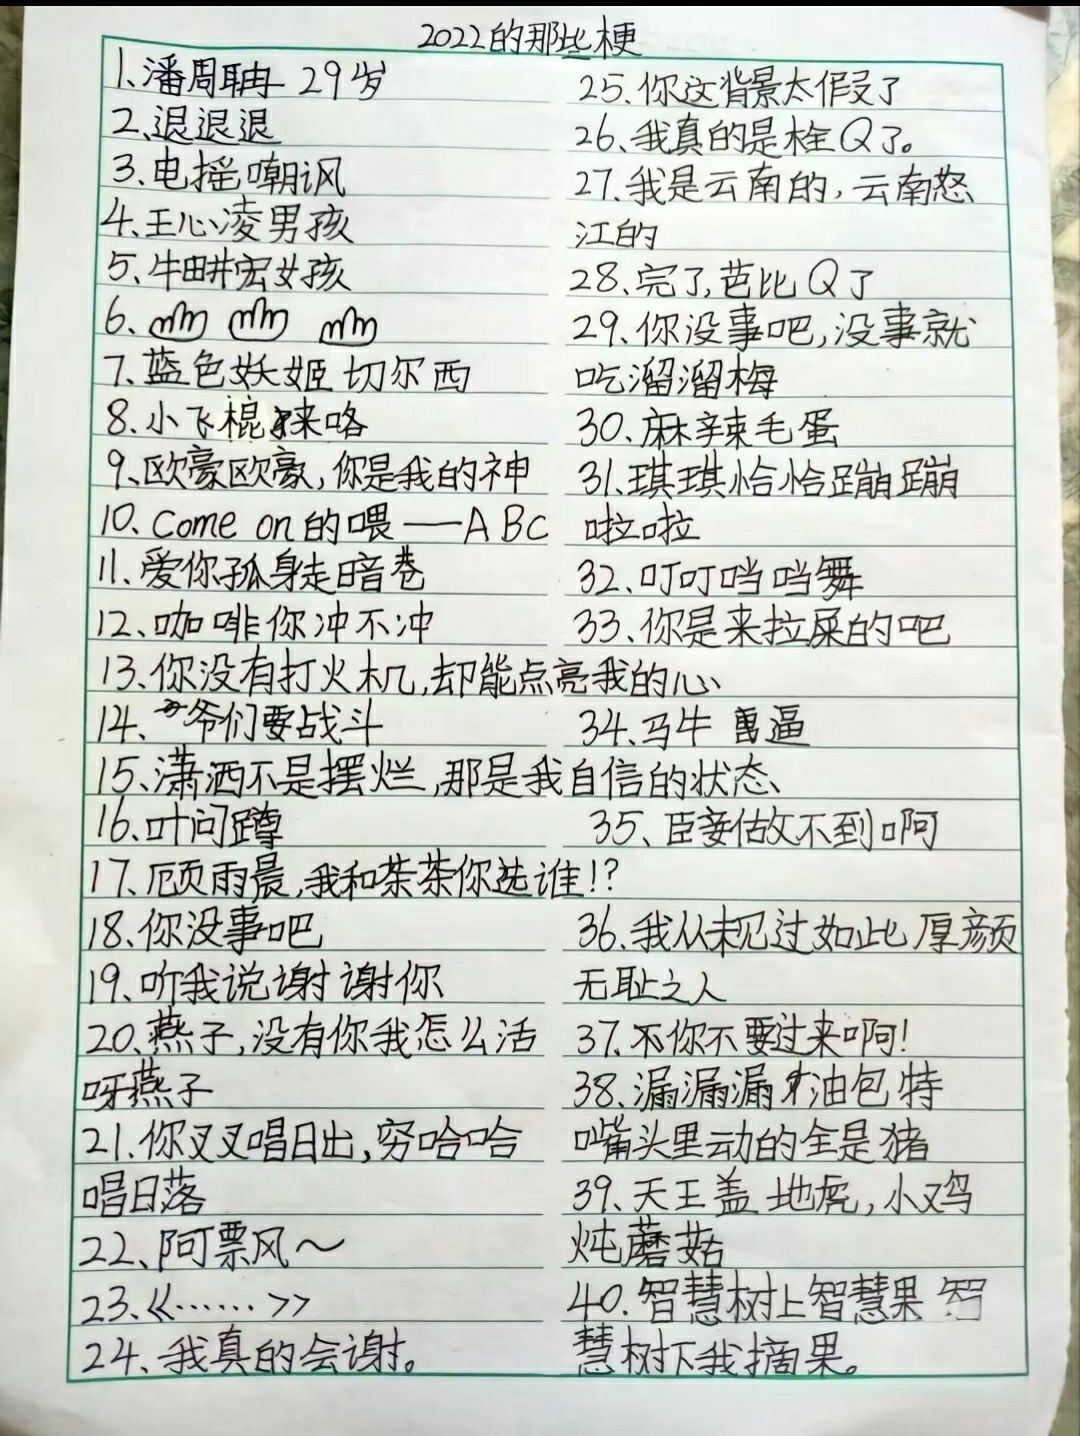 2022的那些梗
1、潘周聃 29岁
2、退退退
3、电摇嘲讽
4、王心凌男孩
5、牛畊宏女孩
6、
7、蓝色妖姬 切尔西
8、小飞棍来咯
9、欧豪欧豪,你是我的神
10、Come on的喂——ABC
11、爱你孤身走暗巷
12、咖啡你冲不冲
13、你没有打火机,却能点亮我的心
14、爷们要战斗
15、潇洒不是摆烂,那是我自信的状态
16、叶问蹲
17、顾雨晨,我和茶茶你选谁!?
18、你没事吧
19、听我说谢谢你
20、燕子,没有你我怎么活
呀燕子
21、你叉叉唱日出,穷哈哈
唱日落
22、阿票风～
23、《……》
24、我真的会谢。
25、你这背景太假了
26、我真的是栓Q了。
27、我是云南的,云南怒
江的
28、完了,芭比Q了
29、你没事吧,没事就
吃溜溜梅
30、麻辣毛蛋
31、琪琪恰恰蹦蹦
啦啦
32、叮叮当当舞
33、你是来拉屎的吧
34、马牛 逼
35、臣妾做不到啊
36、我从未见过如此厚颜
无耻之人
37、不你不要过来啊!
38、漏漏漏油包特
嘴头里动的全是猪
39、天王盖地虎,小鸡
炖蘑菇
40、智慧树上智慧果 智
慧树下我摘果。